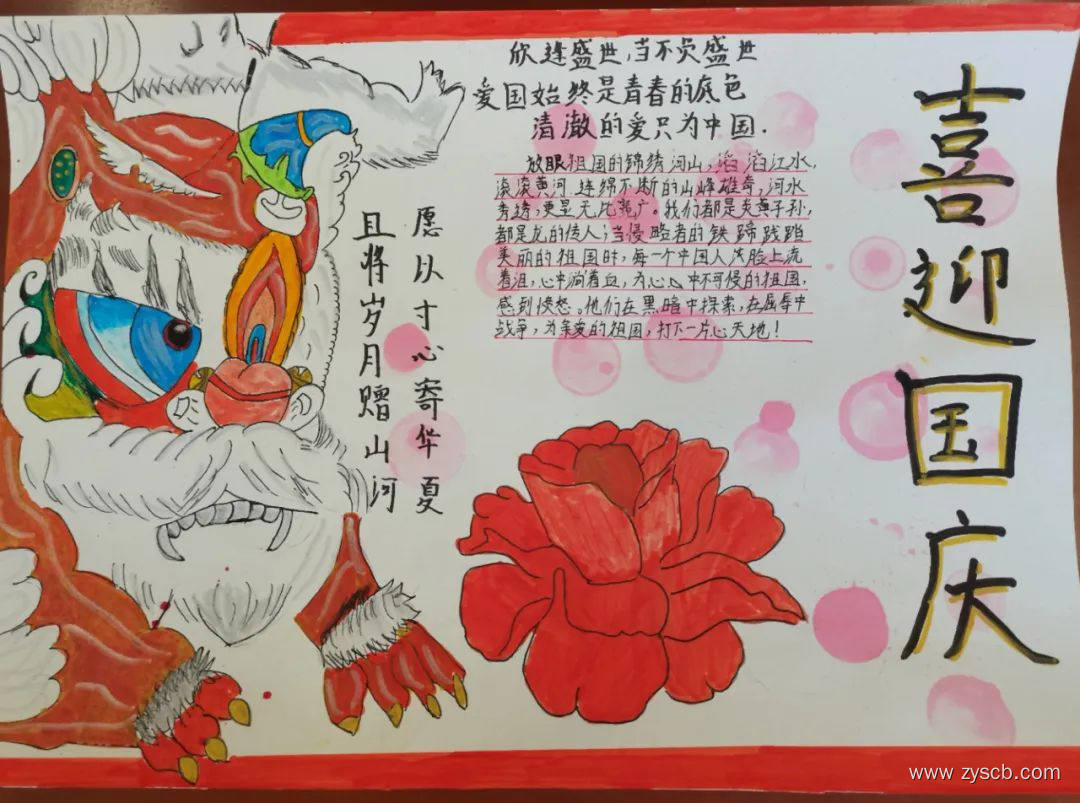 欣逢盛世,当不负盛世
爱国始终是青春的底色
清澈的爱只为中国.
放眼祖国的锦绣河山,滔滔江水,
滚滚黄河,连绵不断的山峰雄奇,河水
秀丽,更显无比宽广。我们都是炎黄子孙,
都是龙的传人;当侵略者的铁蹄践踏
美丽的祖国时,每一个中国人
心中淌着血,为心中不可侵的祖国,
感到愤怒。他们在黑暗中探索,在屈辱中
战争,为亲爱的祖国,打下一片心天地!
喜迎国庆
愿以寸心寄华夏
且将岁月赠山河
www.zyscb.com